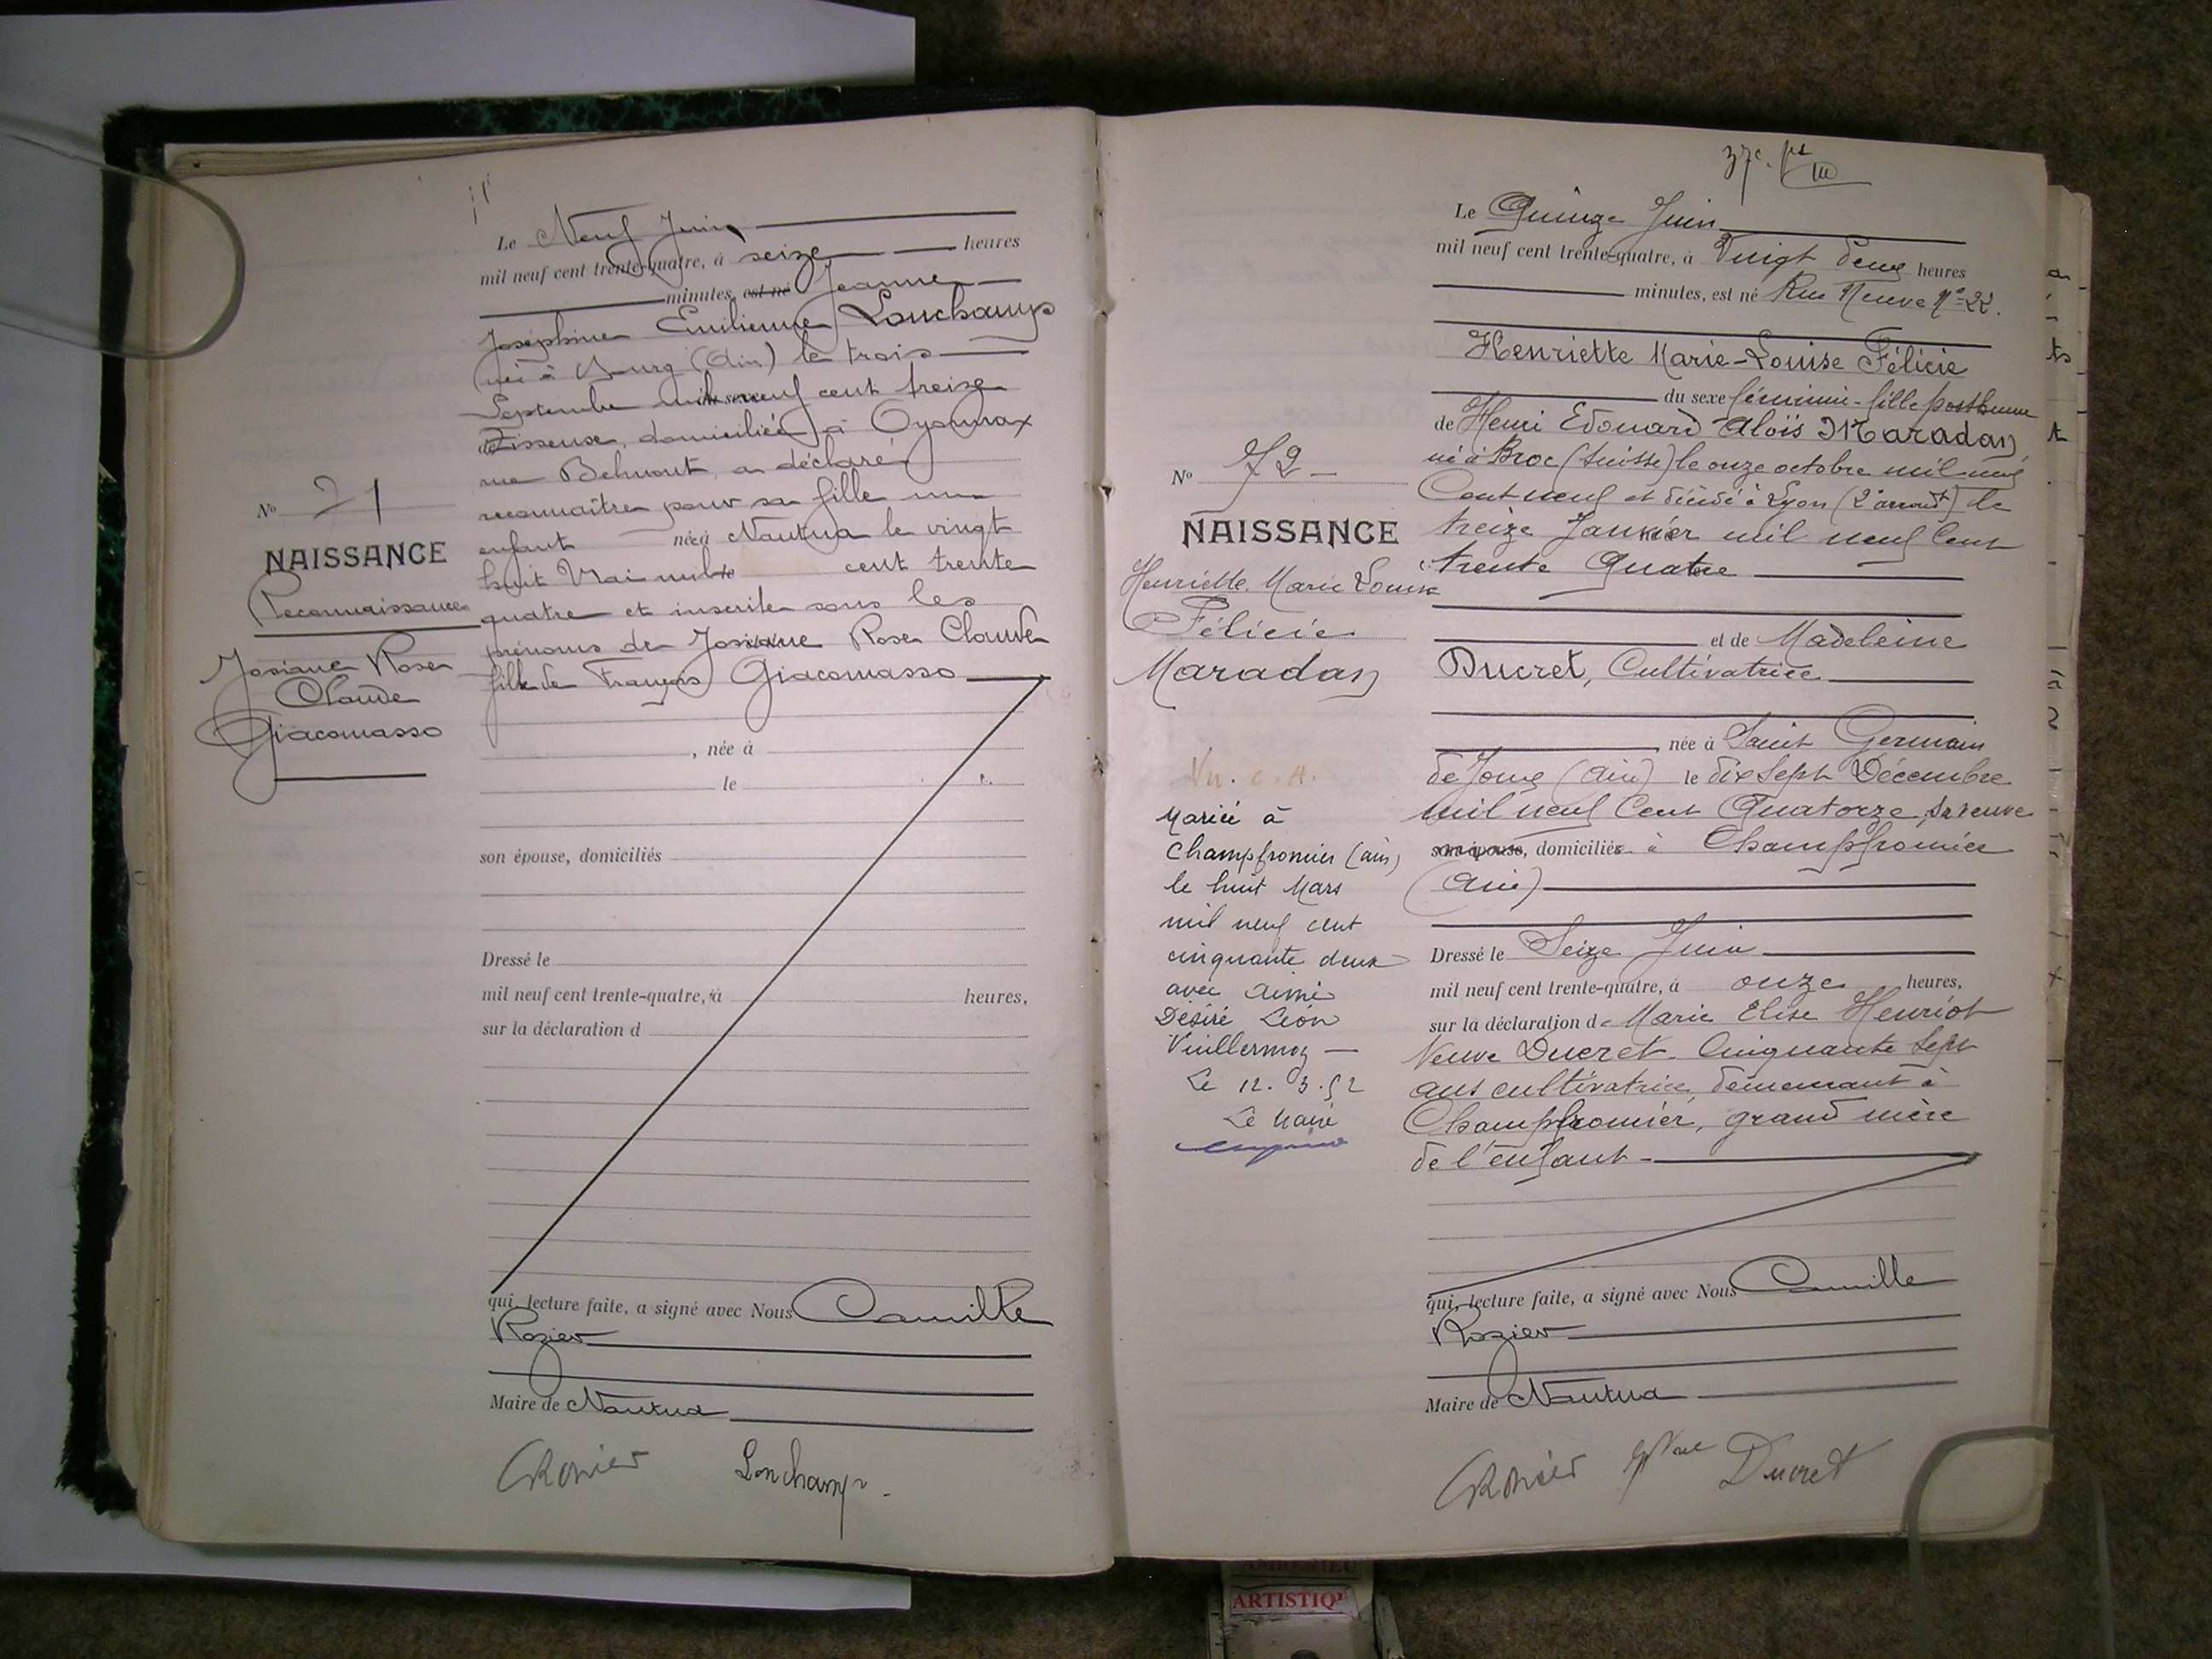 Le Neuf Juin
mil neuf cent trente-quatre, à seize heures
minutes, est né Jeanne
Joséphine Emilienne Lonchamp
née à Bourg (Ain) le trois
Septembre mil neuf cent treize
Tisseuse, domiciliée à Oyonnax
rue Belmont, a déclaré
reconnaître pour sa fille un
enfant née à Nantua le vingt
huit Mai mil cent trente
quatre et inscrite sous les
prénoms de Josiane Rose Claude
fille de François Giacomasso
N° 71
NAISSANCE
Reconnaissance
Josiane Rose
Claude
Giacomasso
, née à
le
son épouse, domiciliés
Dressé le
mil neuf cent trente-quatre, à heures,
sur la déclaration d
qui, lecture faite, a signé avec Nous Camille
Rozier
Maire de Nantua
CRozier Lonchamp
Le Quinze Juin
mil neuf cent trente-quatre, à Vingt deux heures
minutes, est né Rue Neuve N° 22.
Henriette Marie-Louise Félicie
du sexe féminin - fille posthume
de Henri Edouard Aloïs Maradan
né à Broc (Suisse) le onze octobre mil neuf
Cent neuf et décédé à Lyon (2e arrondt) le
treize Janvier mil neuf Cent
trente Quatre
et de Madeleine
Ducret, Cultivatrice
née à Saint Germain
de Joux (Ain) le dix Sept Décembre
mil neuf Cent Quatorze, sa veuve
son épouse, domiciliés à Champfromier
(Ain)
Dressé le Seize Juin
mil neuf cent trente-quatre, à onze heures,
sur la déclaration de Marie Elise Henriot
Veuve Ducret Cinquante Sept
ans cultivatrice, demeurant à
Champfromier, grand mère
de l'enfant
qui, lecture faite, a signé avec Nous Camille
Rozier
Maire de Nantua
CRozier Ducret
N° 72
NAISSANCE
Henriette Marie Louise
Félicie
Maradan
Mariée à
Champfromier (Ain)
le huit Mars
mil neuf cent
cinquante deux
avec Aimé
Désiré Léon
Vuillermoz
Le 12.3.52
Le Maire
ARTISTIQ